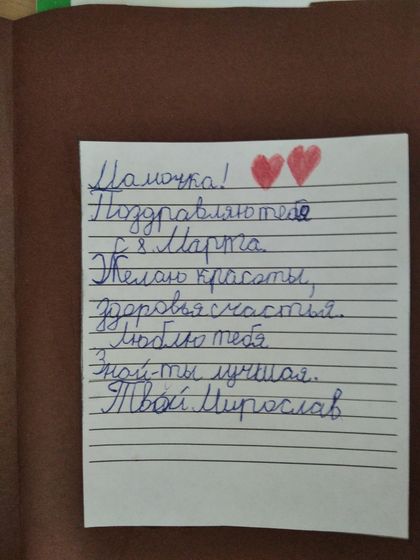 Мамочка!
Поздравляю тебя
с 8 Марта.
Желаю красоты,
здоровья счастья.
Люблю тебя
Знай-ты лучшая.
Твой Мирослав